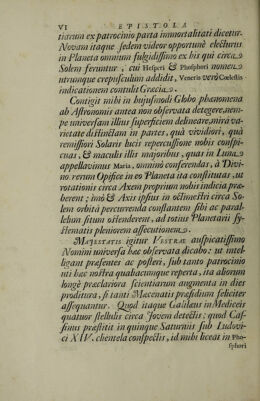 VI EPISTOLA
tiarum ex patrocinio parta immortalitati dicetur.
Novam itaque sedem videor opportunè electurus
in Planeta omnium fulgidissimo ex his qui circa
Solem feruntur, cui Hesperi & Phosphori nomen
utrumque crepusculum addidit, Veneris verò Coelestis
indicationem contulit Græcia.
Contigit mihi in hujusmodi Globo phænomena
ab Astronomis antea non observata detegere, nem-
pe universam illius superficiem delineare, mira va-
rietate distinctam in partes, quà vividiori, quà
remissiori Solaris lucis repercussione nobis conspi-
cuas, & maculis illis majoribus, quas in Luna
appellavimus Maria, omnino conferendas, à Divi-
no rerum Opifice in eo Planeta ita constitutas, ut
rotationis circa Axem proprium nobis indicia præ-
berent; imò & Axis ipsius in octimestri circa So-
lem orbitâ percurrenda constantem sibi ac paral-
lelum situm ostenderent, ad totius Planetarii sy-
stematis pleniorem assecutionem.
MAJESTATIS igitur VESTRÆ auspicatissimo
Nomini universa hæc observata dicabo: ut intel-
ligant præsentes ac posteri, sub tanto patrocinio
uti hæc nostra quabacumque reperta, ita aliorum
longè præclariora scientiarum augmenta in dies
proditura, si tanti Mæcenatis præsidium feliciter
assequantur. Quod itaque Galilæus in Mediceis
quatuor stellulis circa Jovem detectis: quod Cas-
sinus præstitit in quinque Saturniis sub Ludovi-
ci XIV. clientela conspectis, id mihi liceat in Pho-
sphori